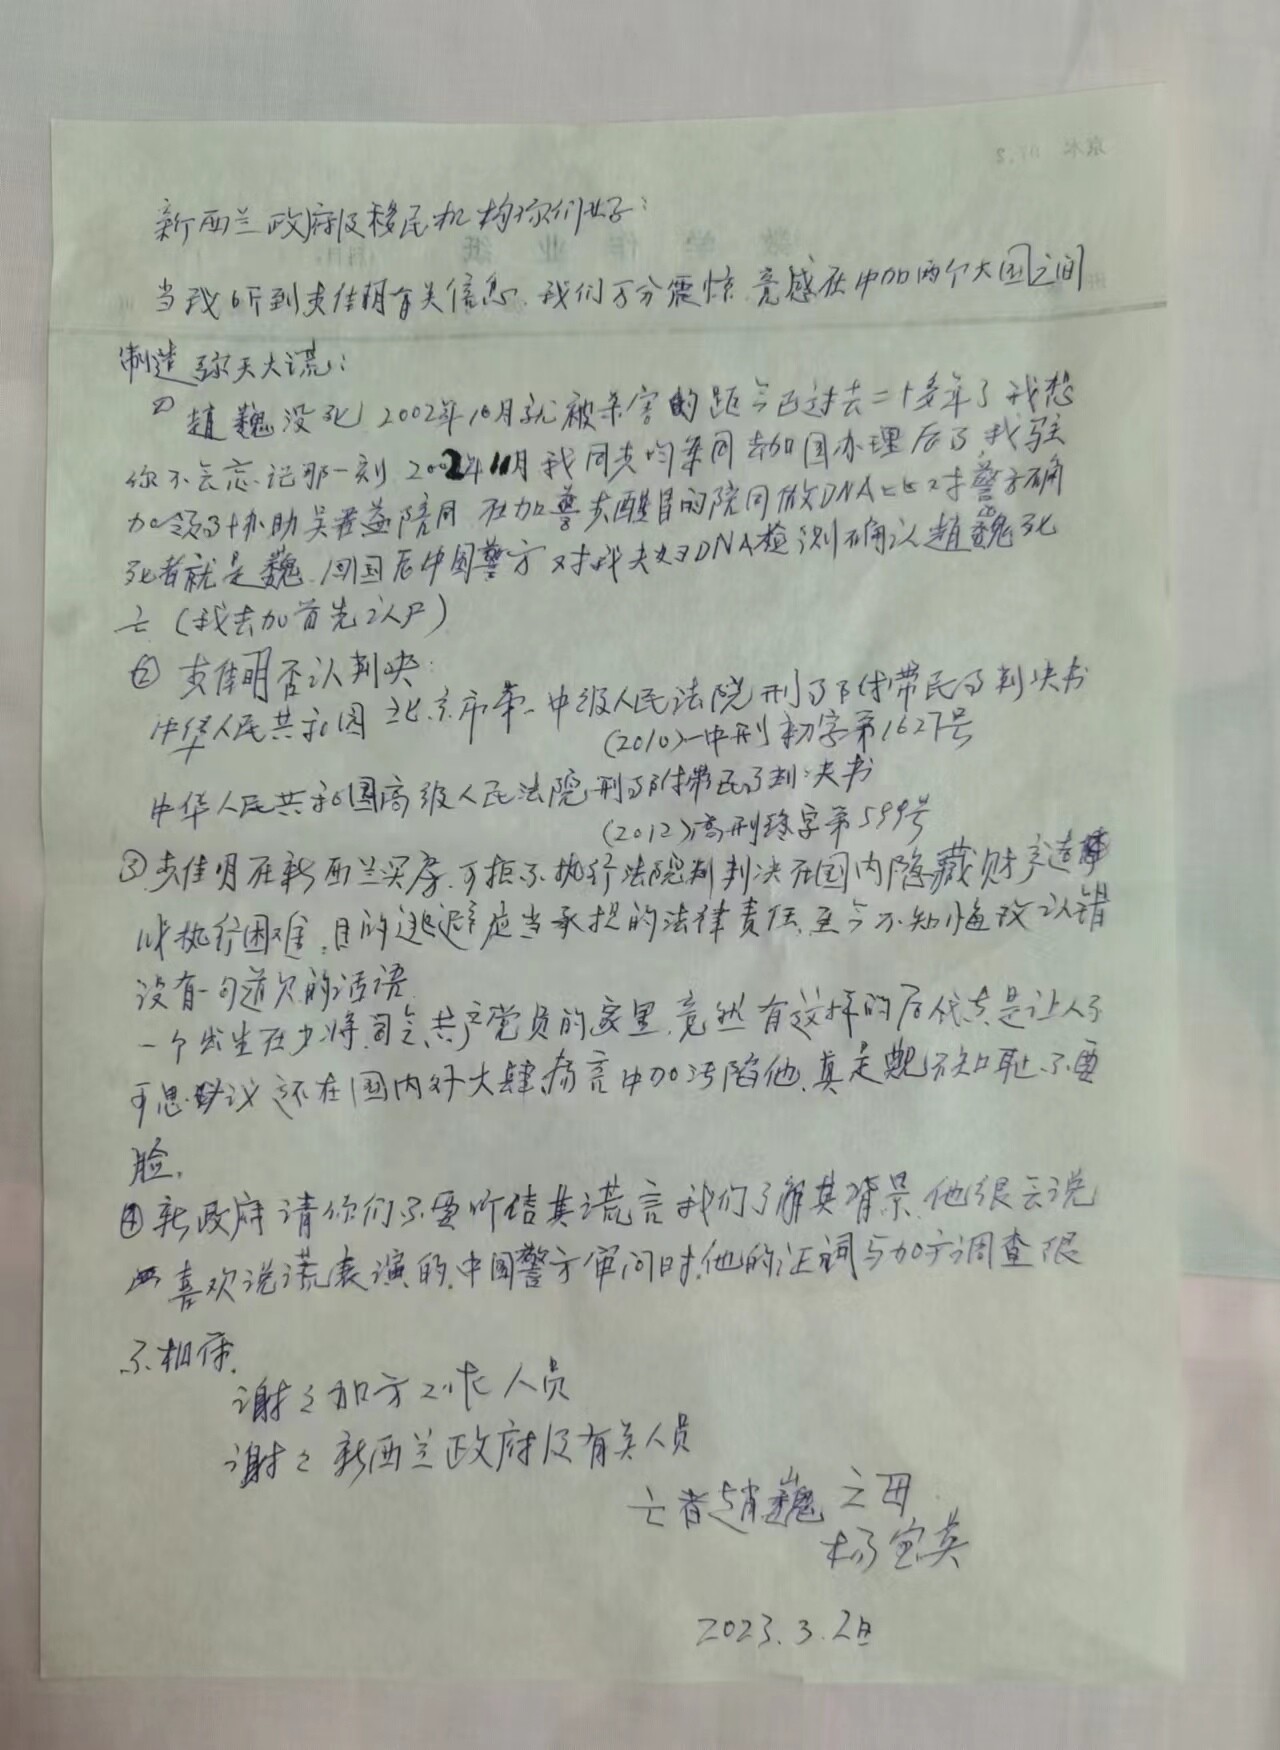 新西兰政府及移民机构你们好:
当我听到李佳明有关信息.我们万分震惊.竟感在中加两个大国之间
制造弥天大谎:
① 赵巍没死 2002年10月就被杀害的距今已过去二十多年了我想
你不会忘记那一刻 2002年11月我同李均来同去加国办理后事我驻
加领事协助吴 陪同 在加警 的陪同做DNA比对警方确
死者就是巍.回国后中国警方对我夫妇DNA检测确认赵巍死
亡(我去加首先认尸)
② 李佳明否认判决:
中华人民共和国北京市第一中级人民法院刑事附带民事判决书
(2010)一中刑初字第1627号
中华人民共和国高级人民法院刑事附带民事判决书
(2012)高刑终字第599号
③李佳明在新西兰买房.可拒不执行法院判决在国内隐藏财产造
成执行困难.目的逃避应当承担的法律责任.至今不知悔改认错
没有一句道欠的话语.
一个出生在少将司令共产党员的家里.竟然有这样的后代真是让人不
可思议还在国内外大肆扬言中加污陷他.真是 不知耻.不要
脸.
④新政府请你们不要听信其谎言我们了解其背景.他很会说
喜欢说谎表演的.中国警方审问时.他的证词与加方调查很
不相符.
谢谢加方工作人员
谢谢新西兰政府及有关人员
亡者赵巍之母
杨宝英
2023.3.2日
京本 07.2
数学作业纸